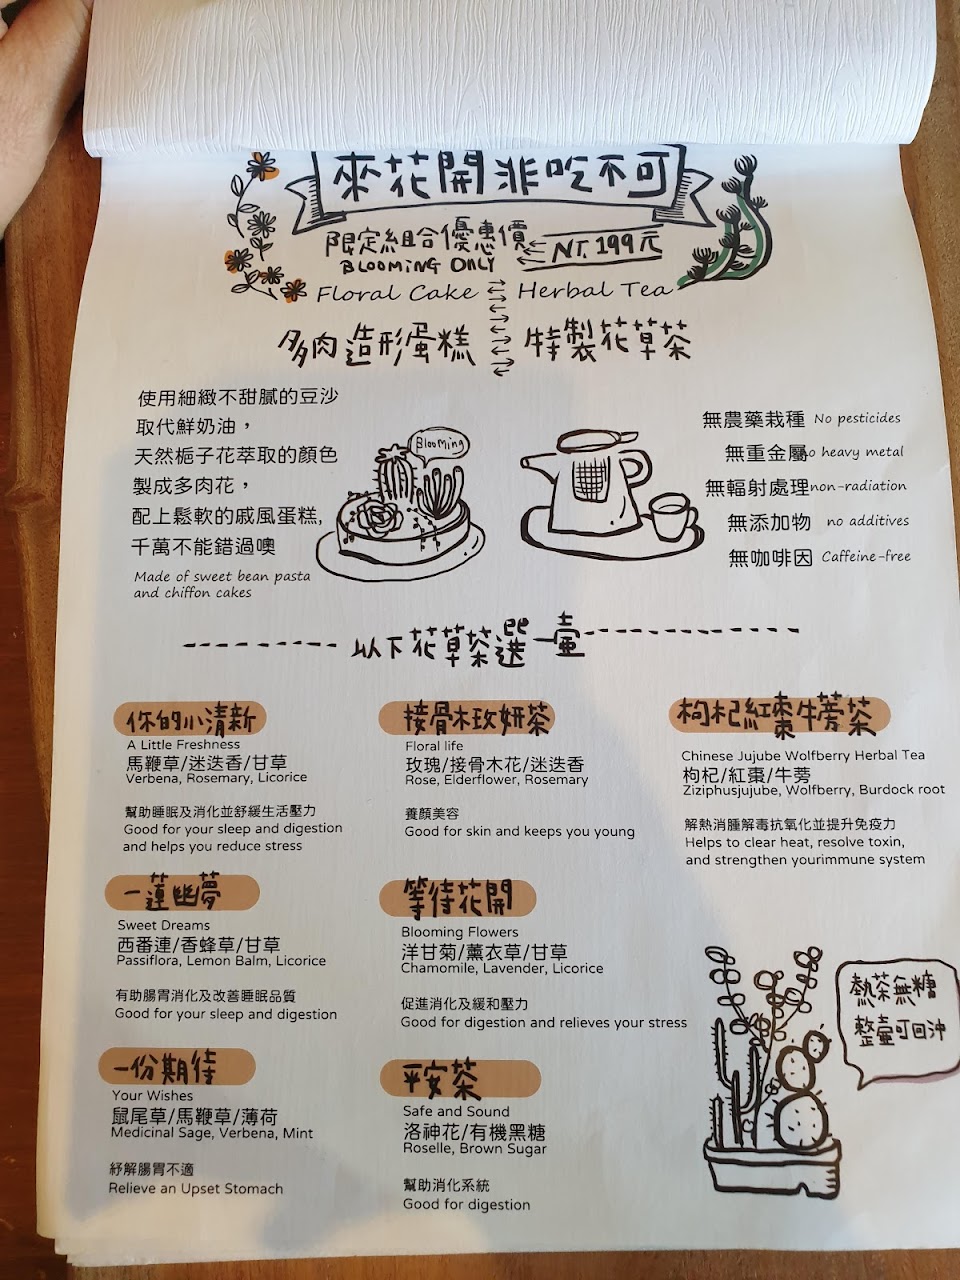 來花開非吃不可
限定組合優惠價 NT.199元
BLOOMING ONLY
Floral Cake
Herbal Tea
多肉造形蛋糕
特製花草茶
使用細緻不甜膩的豆沙
取代鮮奶油，
天然梔子花萃取的顏色
製成多肉花，
配上鬆軟的戚風蛋糕,
千萬不能錯過噢
Made of sweet bean pasta
and chiffon cakes
Blooming
無農藥栽種 No pesticides
無重金屬 o heavy metal
無輻射處理 non-radiation
無添加物 no additives
無咖啡因 Caffeine-free
以下花草茶選一壺
你的小清新
A Little Freshness
馬鞭草/迷迭香/甘草
Verbena, Rosemary, Licorice
幫助睡眠及消化並舒緩生活壓力
Good for your sleep and digestion
and helps you reduce stress
接骨木玫妍茶
Floral life
玫瑰/接骨木花/迷迭香
Rose, Elderflower, Rosemary
養顏美容
Good for skin and keeps you young
枸杞紅棗牛蒡茶
Chinese Jujube Wolfberry Herbal Tea
枸杞/紅棗/牛蒡
Ziziphusjujube, Wolfberry, Burdock root
解熱消腫解毒抗氧化並提升免疫力
Helps to clear heat, resolve toxin,
and strengthen yourimmune system
一蓮幽夢
Sweet Dreams
西番連/香蜂草/甘草
Passiflora, Lemon Balm, Licorice
有助腸胃消化及改善睡眠品質
Good for your sleep and digestion
等待花開
Blooming Flowers
洋甘菊/薰衣草/甘草
Chamomile, Lavender, Licorice
促進消化及緩和壓力
Good for digestion and relieves your stress
一份期待
Your Wishes
鼠尾草/馬鞭草/薄荷
Medicinal Sage, Verbena, Mint
紓解腸胃不適
Relieve an Upset Stomach
平安茶
Safe and Sound
洛神花/有機黑糖
Roselle, Brown Sugar
幫助消化系統
Good for digestion
熱茶無糖
整壺可回沖